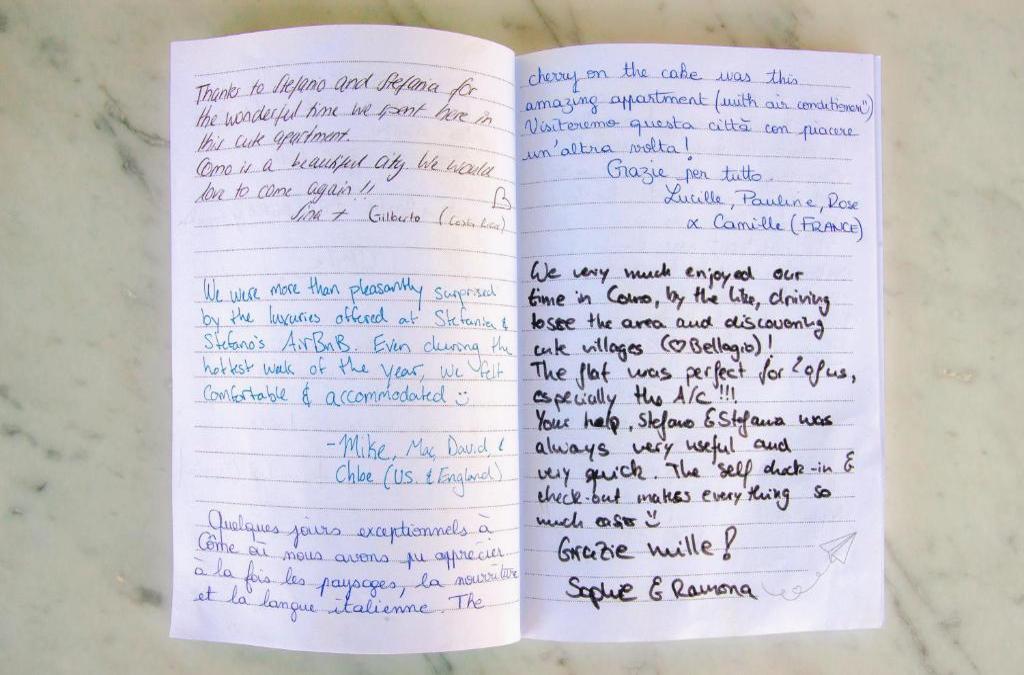 Thanks to Stefano and Stefania for
the wonderful time we spent here in
this cute apartment.
Como is a beautiful city. We would
love to come again!!
Sina + Gilberto (Costa Rica)
We were more than pleasantly surprised
by the luxuries offered at Stefania &
Stefano's AirBnB. Even during the
hottest week of the year, we felt
comfortable & accommodated
-Mike, Mac, David, &
Chloe (US. & England)
Quelques jours exceptionnels à
Côme où nous avons pu apprécier
à la fois les paysages, la nourriture
et la langue italienne. The
cherry on the cake was this
amazing appartment (with air conditioner!!)
Visiteremo questa città con piacere
un'altra volta!
Grazie per tutto.
Lucille, Pauline, Rose
& Camille (FRANCE)
We very much enjoyed our
time in Como, by the like, driving
to see the area and discovering
cute villages (♡Bellagio)!
The flat was perfect for 2 of us,
especially the A/C!!!
Your help, Stefano & Stefania was
always very useful and
very quick. The self check-in &
check-out makes everything so
much easier
Grazie mille!
Sophie & Ramona